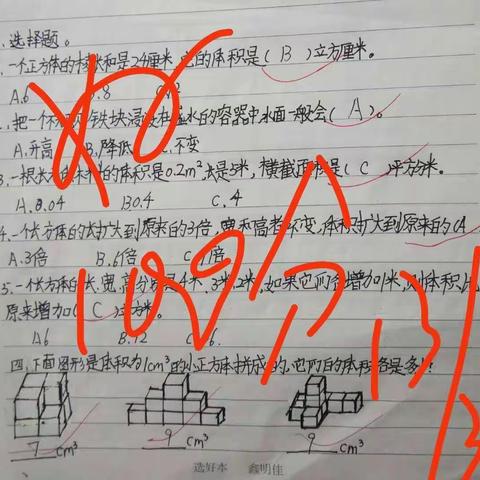 选择题。
一个正方体的棱长和是24厘米,它的体积是( B )立方厘米。
A.6 8
把一个 铁块浸没在 水的容器中,水面一般会( A )。
A.升高 B.降低 不变
3.一根长方体木料的体积是0.2m³,长是5米,横截面积是( C )平方分米。
A.0.04 B.0.4 C.4
4.一个长方体的长扩大到原来的3倍,宽和高都不变,体积扩大到原来的(A
A.3倍 B.6倍 C.
5.一个长方体的长、宽、高分别是4米、3米、2米,如果它们各增加1米,则体积比
原来增加( C )立方米。
A6 B.12 C. 6.
四,下面图形是体积为1cm³的小正方体拼成的,它们的体积各是多少?
7 cm³ 9 cm³ 9 cm³
选好本 鑫明佳
100分